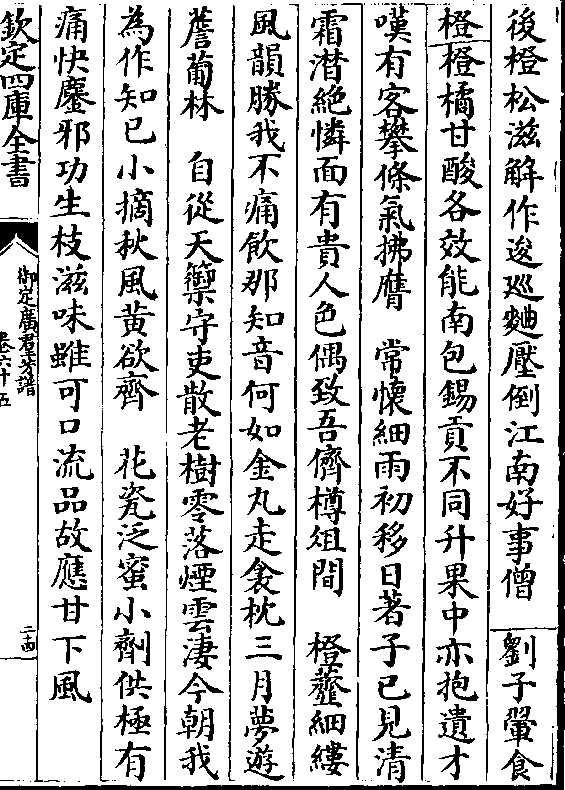 後橙松滋解作逡巡麯壓倒江南好事僧　劉子翬食
橙橙橘甘酸各效能南包錫貢不同升果中亦抱遺才
嘆有客攀條氣拂膺　常懷細雨初移日著子已見清
霜潜絶憐面有貴人色偶致吾儕樽俎間　橙虀細縷
風韻勝我不痛飲那知音何如金丸走衾枕三月夢遊
薝葡林　自從天籞守吏散老樹零落煙雲凄今朝我
為作知已小摘秋風黄欲齊　花瓷泛蜜小劑供極有
痛快鏖邪功生枝滋味雖可口流品故應甘下風
欽定四庫全書
御定廣羣芳譜
卷六十五